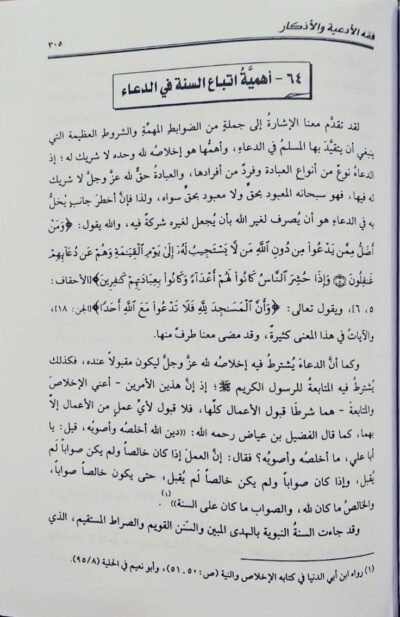 فقه الأدعية والأذكار
٣٠٥
٦٤ - أهميَّةُ اتباع السنة في الدعاء
لقد تقدَّم معنا الإشارةُ إلى جملةٍ من الضوابط المهمَّةِ والشروط العظيمة التي
ينبغي أن يتقيَّدَ بها المسلمُ في الدعاءِ، وأهمُّها هو إخلاصُه لله وحده لا شريك له؛ إذ
الدعاءُ نوعٌ من أنواع العبادة وفردٌ من أفرادها، والعبادةُ حقٌّ لله عزَّ وجلَّ لا شريك
له فيها، فهو سبحانه المعبود بحقٍّ ولا معبود بحقٍّ سواه، ولذا فإنَّ أخطرَ جانبٍ يُخلُّ
به في الدعاءِ هو أن يُصرف لغير الله بأن يُجعل لغيره شركة فيه، والله يقول: ﴿وَمَنْ
أَضَلُّ مِمَّن يَدْعُواْ مِن دُونِ ٱللَّهِ مَن لَّا يَسْتَجِيبُ لَهُۥٓ إِلَىٰ يَوْمِ ٱلْقِيَٰمَةِ وَهُمْ عَن دُعَآئِهِمْ
غَٰفِلُونَ ۝ وَإِذَا حُشِرَ ٱلنَّاسُ كَانُواْ لَهُمْ أَعْدَآءً وَكَانُواْ بِعِبَادَتِهِمْ كَٰفِرِينَ﴾[الأحقاف:
٥، ٦]، ويقول تعالى: ﴿وَأَنَّ ٱلْمَسَٰجِدَ لِلَّهِ فَلَا تَدْعُواْ مَعَ ٱللَّهِ أَحَدًا﴾[الجن: ١٨]،
والآياتُ في هذا المعنى كثيرةٌ، وقد مضى معنا طرفٌ منها.
وكما أنَّ الدعاءَ يُشترطُ فيه إخلاصُه لله عزَّ وجلَّ ليكون مقبولاً عنده، فكذلك
يُشترطُ فيه المتابعةُ للرسول الكريم ﷺ؛ إذ إنَّ هذين الأمرين - أعني الإخلاصَ
والمتابعةَ - هما شرطَا قبول الأعمال كلِّها، فلا قبول لأيِّ عملٍ من الأعمال إلاَّ
بهما، كما قال الفضيل بن عياض رحمه الله: ((دين الله أخلصُه وأصوبُه، قيل: يا
أبا علي، ما أخلصُه وأصوبُه؟ فقال: إنَّ العملَ إذا كان خالصاً ولم يكن صواباً لم
يُقبل، وإذا كان صواباً ولم يكن خالصاً لم يُقبل، حتى يكون خالصاً صواباً،
والخالصُ ما كان لله، والصواب ما كان على السنة))(١).
وقد جاءت السنةُ النبوية بالهدى المبين والسَّنَن القويم والصراط المستقيم، الذي
(١) رواه ابن أبي الدنيا في كتابه الإخلاص والنية (ص:٥٠ـ٥١)، وأبو نعيم في الحلية (٩٥/٨)